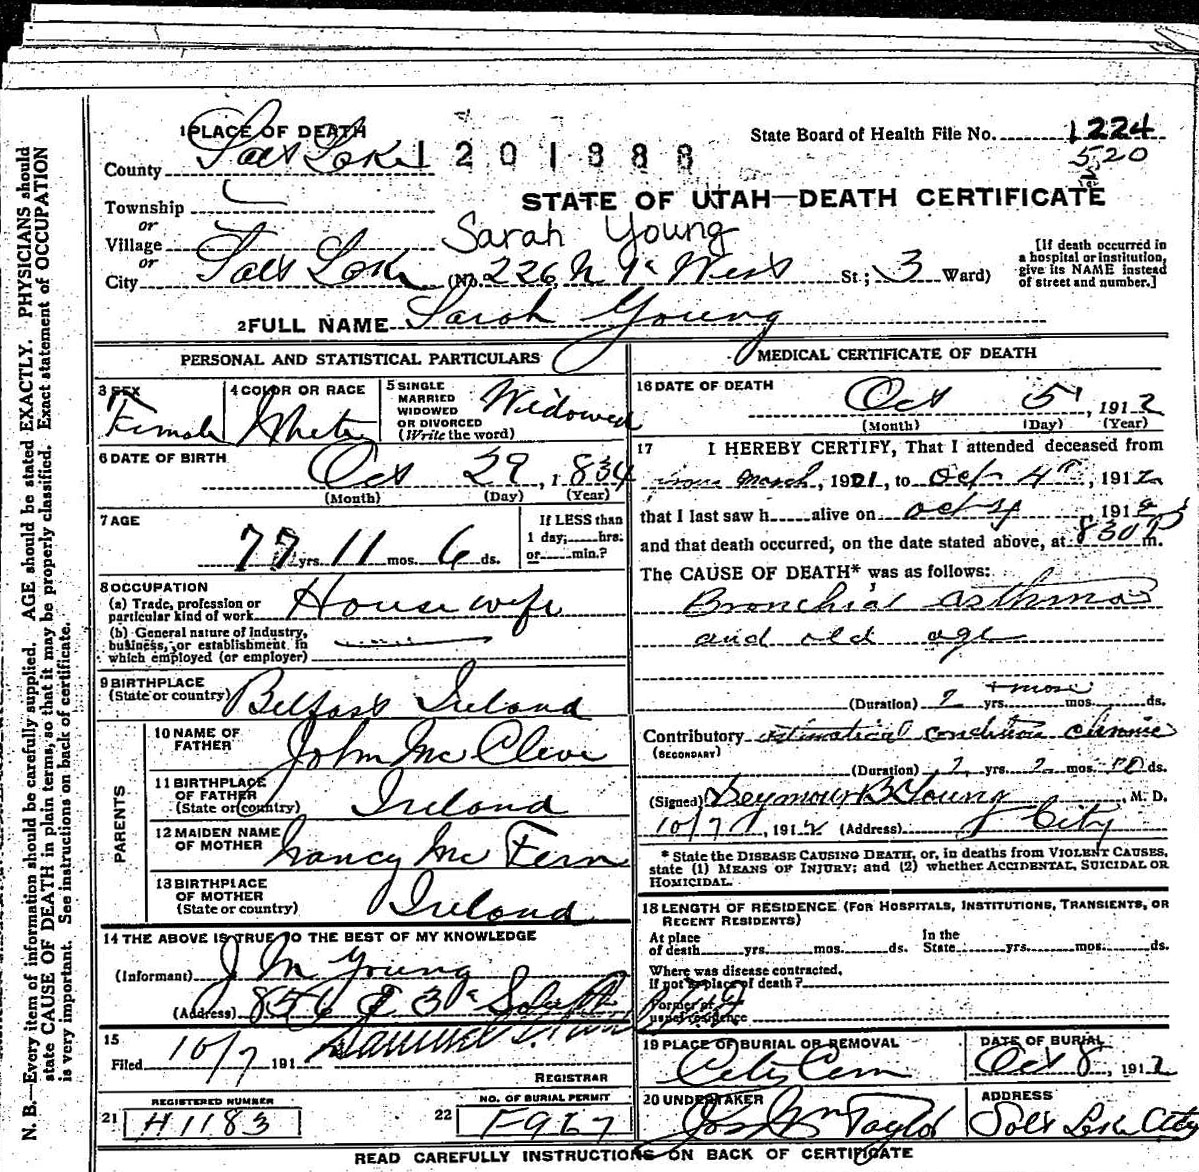 1 PLACE OF DEATH
State Board of Health File No. 1224
County Salt Lake 1201888
520
STATE OF UTAH—DEATH CERTIFICATE
Township
or
Village
Sarah Young
or
City Salt Lake (No. 226 N 1st West St.; 3 Ward)
[If death occurred in
a hospital or institution,
give its NAME instead
of street and number.]
2 FULL NAME Sarah Young
PERSONAL AND STATISTICAL PARTICULARS
3 SEX
Female
4 COLOR OR RACE
White
5 SINGLE
MARRIED
WIDOWED
OR DIVORCED
(Write the word)
Widowed
6 DATE OF BIRTH
Oct 29, 1834
(Month) (Day) (Year)
7 AGE
77 yrs. 11 mos. 6 ds.
If LESS than
1 day, hrs.
or min.?
8 OCCUPATION
(a) Trade, profession or
particular kind of work House wife
(b) General nature of Industry,
business, or establishment in
which employed (or employer)
9 BIRTHPLACE
(State or country) Belfast Ireland
PARENTS
10 NAME OF
FATHER John McCleve
11 BIRTHPLACE
OF FATHER
(State or country) Ireland
12 MAIDEN NAME
OF MOTHER Nancy Mc Fern
13 BIRTHPLACE
OF MOTHER
(State or country) Ireland
14 THE ABOVE IS TRUE TO THE BEST OF MY KNOWLEDGE
(Informant) J M Young
(Address) 856 E 3d
15
Filed 10/7 191
REGISTRAR
REGISTERED NUMBER
21 H1183
NO. OF BURIAL PERMIT
22 F967
MEDICAL CERTIFICATE OF DEATH
16 DATE OF DEATH
Oct 5, 1912
(Month) (Day) (Year)
17 I HEREBY CERTIFY, That I attended deceased from
March, 1901, to Oct 4th, 1912
that I last saw h alive on Oct 4, 1912
and that death occurred, on the date stated above, at 830 m.
The CAUSE OF DEATH* was as follows:
Bronchial asthma
and old age
(Duration) yrs. mos. ds.
Contributory condition
(SECONDARY)
(Duration) yrs. mos. ds.
(Signed) Seymour B Young, M. D.
10/7, 1912 (Address) City
* State the DISEASE CAUSING DEATH, or, in deaths from VIOLENT CAUSES,
state (1) MEANS OF INJURY; and (2) whether ACCIDENTAL, SUICIDAL OR
HOMICIDAL.
18 LENGTH OF RESIDENCE (FOR HOSPITALS, INSTITUTIONS, TRANSIENTS, OR
RECENT RESIDENTS)
At place
of death yrs. mos. ds.
In the
State yrs. mos. ds.
Where was disease contracted,
if not at place of death?
Former or
usual residence
19 PLACE OF BURIAL OR REMOVAL
City Cem
DATE OF BURIAL
Oct 8, 1912
20 UNDERTAKER
Jos Wm Taylor
ADDRESS
Salt Lake City
READ CAREFULLY INSTRUCTIONS ON BACK OF CERTIFICATE
N. B.—Every item of information should be carefully supplied. AGE should be stated EXACTLY. PHYSICIANS should
state CAUSE OF DEATH in plain terms, so that it may be properly classified. Exact statement of OCCUPATION
is very important. See instructions on back of certificate.